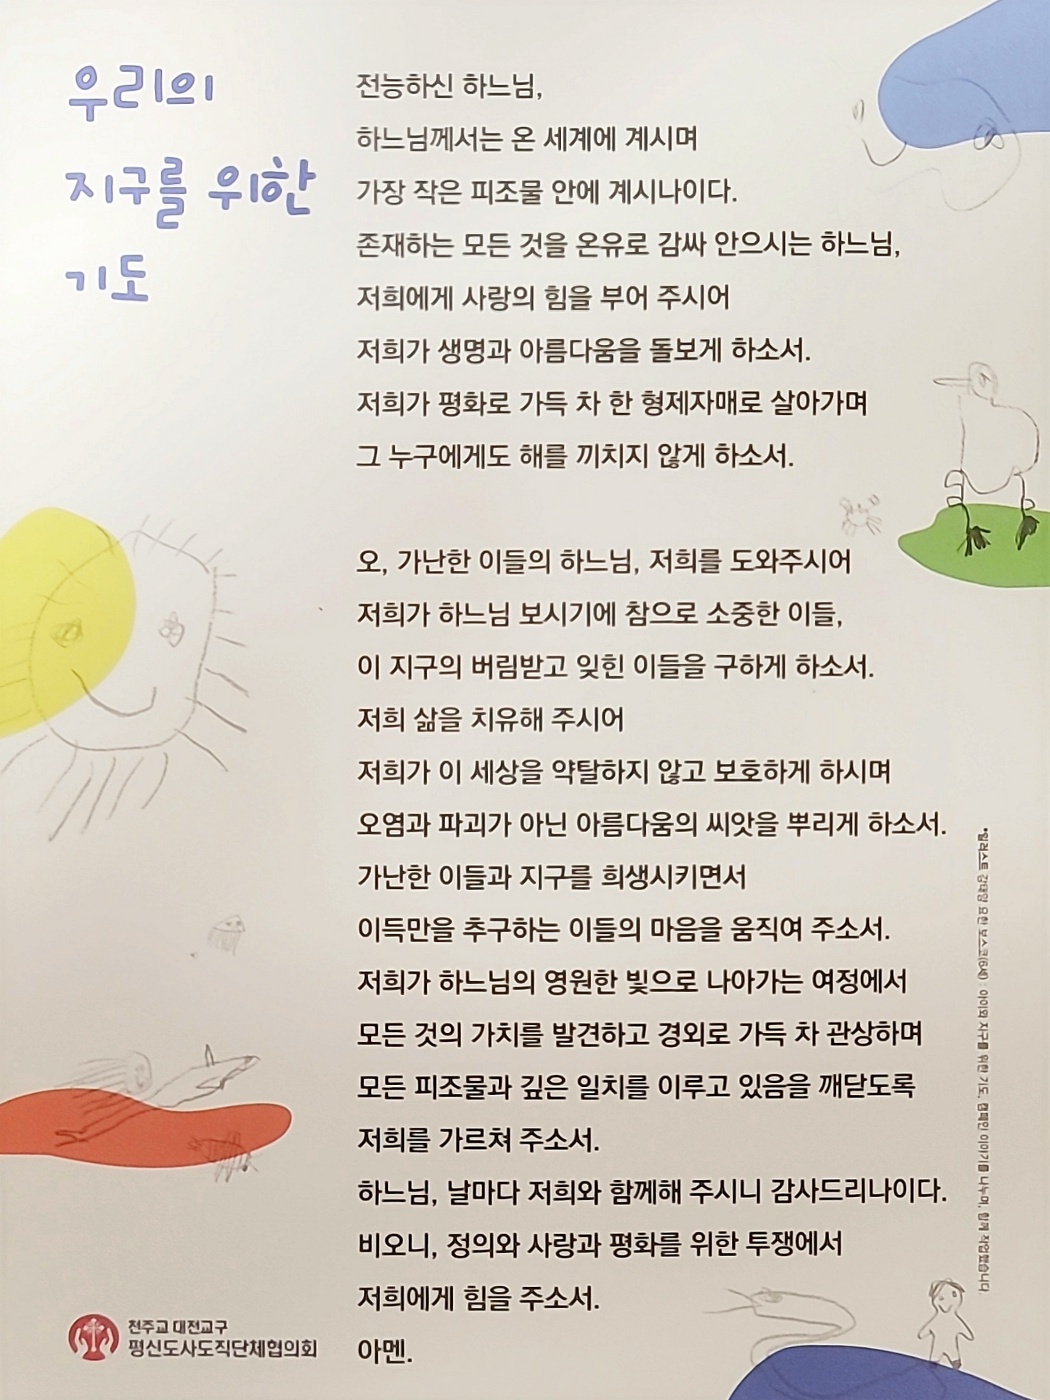 우리의
지구를 위한
기도
전능하신 하느님,
하느님께서는 온 세계에 계시며
가장 작은 피조물 안에 계시나이다.
존재하는 모든 것을 온유로 감싸 안으시는 하느님,
저희에게 사랑의 힘을 부어 주시어
저희가 생명과 아름다움을 돌보게 하소서.
저희가 평화로 가득 차 한 형제자매로 살아가며
그 누구에게도 해를 끼치지 않게 하소서.
오, 가난한 이들의 하느님, 저희를 도와주시어
저희가 하느님 보시기에 참으로 소중한 이들,
이 지구의 버림받고 잊힌 이들을 구하게 하소서.
저희 삶을 치유해 주시어
저희가 이 세상을 약탈하지 않고 보호하게 하시며
오염과 파괴가 아닌 아름다움의 씨앗을 뿌리게 하소서.
가난한 이들과 지구를 희생시키면서
이득만을 추구하는 이들의 마음을 움직여 주소서.
저희가 하느님의 영원한 빛으로 나아가는 여정에서
모든 것의 가치를 발견하고 경외로 가득 차 관상하며
모든 피조물과 깊은 일치를 이루고 있음을 깨닫도록
저희를 가르쳐 주소서.
하느님, 날마다 저희와 함께해 주시니 감사드리나이다.
비오니, 정의와 사랑과 평화를 위한 투쟁에서
저희에게 힘을 주소서.
아멘.
*일러스트 요한 보스코(6세) : 아이와 지구를 위한 기도, 캠페인 이야기를 나누며, 함께 작업했습니다.
천주교 대전교구
평신도사도직단체협의회